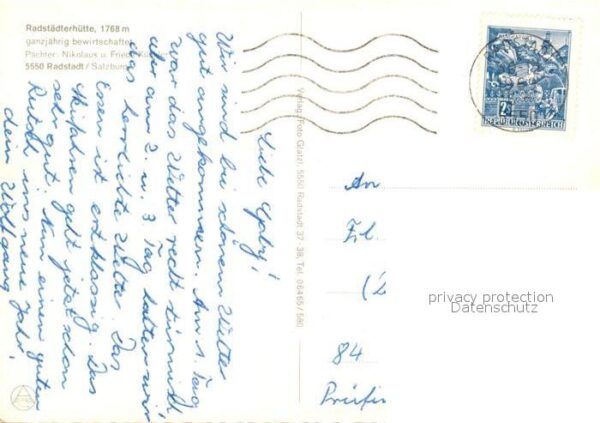 Radstädterhütte, 1768 m
ganzjährig bewirtschaftet
Pächter: Nikolaus u. Friedl
5550 Radstadt / Salzburg
Liebe
Wir sind bei schönem Wetter
gut angekommen. Am 1. Tag
war das Wetter recht stürmisch
aber am 2. u. 3. Tag hatten wir
das herrlichste Wetter. Das
Essen ist erstklassig. Das
Skifahren geht jetzt schon
sehr gut. Nun einen guten
Rutsch ins neue Jahr!
dein Wolfgang
Verlag Foto Gratzl, 5550 Radstadt 37-38, Tel. 06465/590
2S
REPUBLIK ÖSTERREICH
An
Fil.
84
Prüfin
privacy protection
Datenschutz